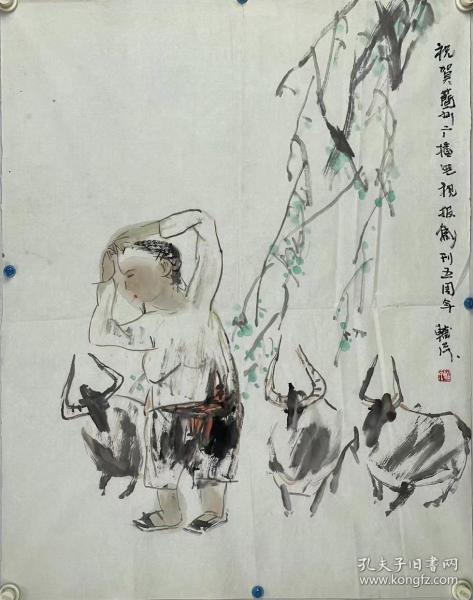 祝贺兰州广播电视报创刊五周年
孔夫子旧书网
www.kongfz.com